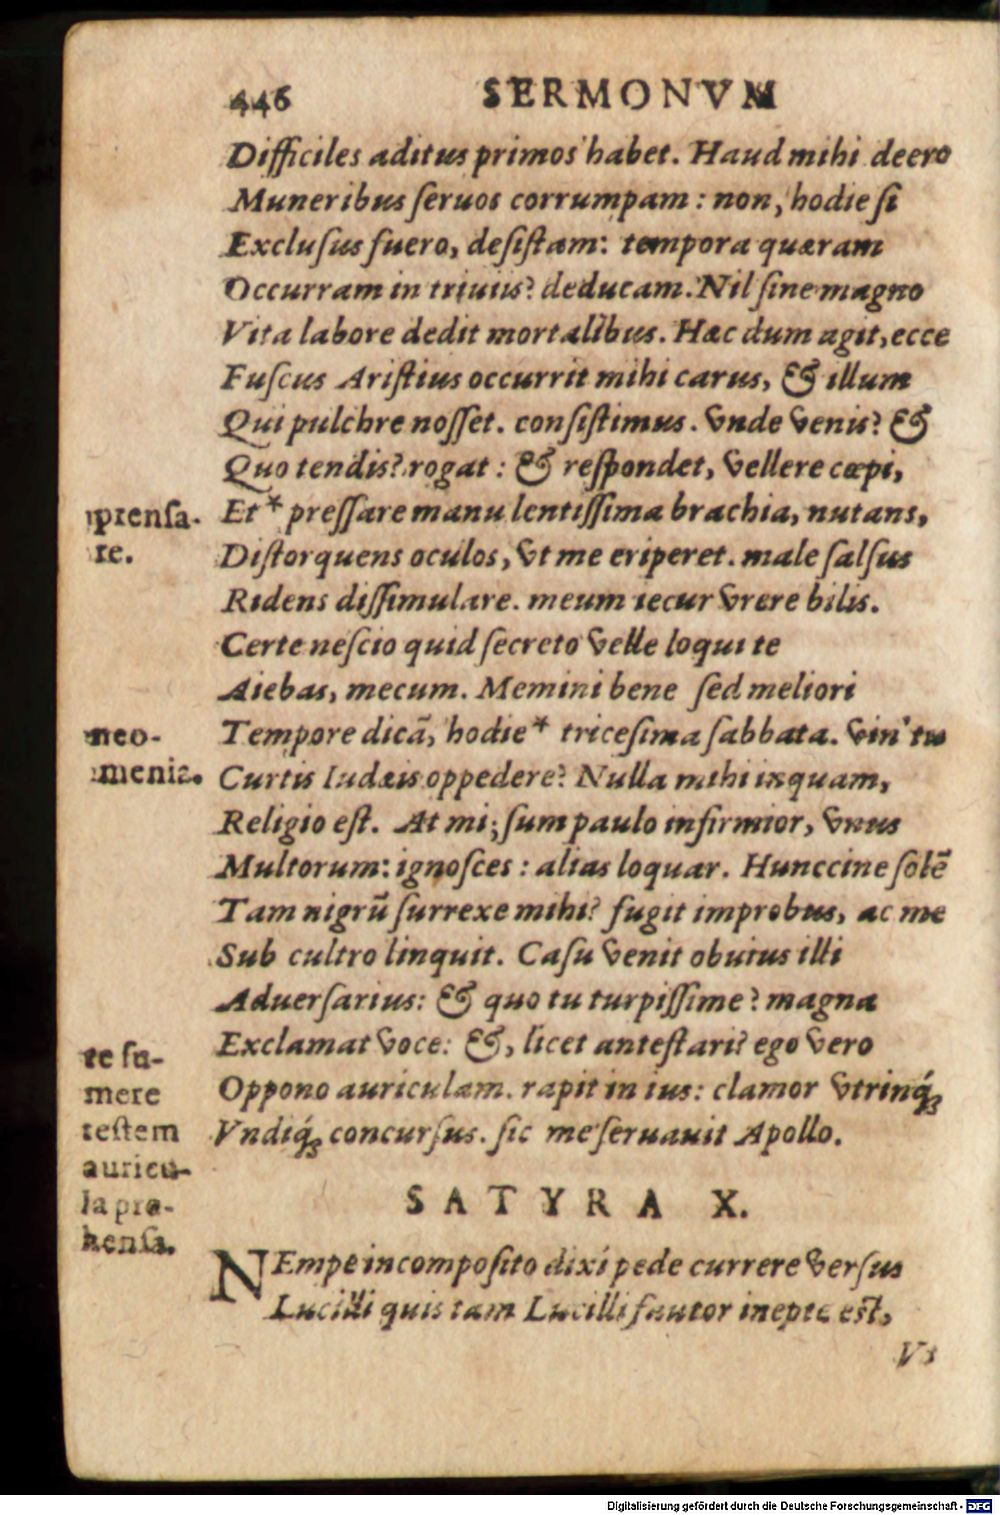 446 SERMONVM
Difficiles aditus primos habet. Haud mihi deero
Muneribus ſeruos corrumpam: non, hodie ſi
Excluſus fuero, deſiſtam: tempora quæram
Occurram in triuiis? deducam. Nil ſine magno
Vita labore dedit mortalibus. Hæc dum agit, ecce
Fuſcus Ariſtius occurrit mihi carus, & illum
Qui pulchre noſſet. conſiſtimus. vnde venis? &
Quo tendis? rogat: & reſpondet, vellere cœpi,
Et * preſſare manu lentiſſima brachia, nutans,
Diſtorquens oculos, vt me eriperet. male ſalſus
Ridens diſſimulare. meum iecur vrere bilis.
Certe neſcio quid ſecreto velle loqui te
Aiebas, mecum. Memini bene ſed meliori
Tempore dicã, hodie * triceſima ſabbata. vin' tu
Curtis Iudæis oppedere? Nulla mihi inquam,
Religio eſt. At mi; ſum paulo infirmior, vnus
Multorum: ignoſces: alias loquar. Hunccine ſolẽ
Tam nigrũ ſurrexe mihi? fugit improbus, ac me
Sub cultro linquit. Caſu venit obuius illi
Aduerſarius: & quo tu turpiſſime? magna
Exclamat voce: &, licet anteſtari? ego vero
Oppono auriculam. rapit in ius: clamor vtrinq́;
Vndiq́; concurſus. ſic me ſeruauit Apollo.
prenſa-
re.
neo-
menia.
te ſu-
mere
teſtem
auricu-
la præ-
henſa.
SATYRA X.
NEmpe incompoſito dixi pede currere verſus
Lucilli quis tam Lucilli fautor inepte eſt,
Vt
Digitalisierung gefördert durch die Deutsche Forschungsgemeinschaft - DFG